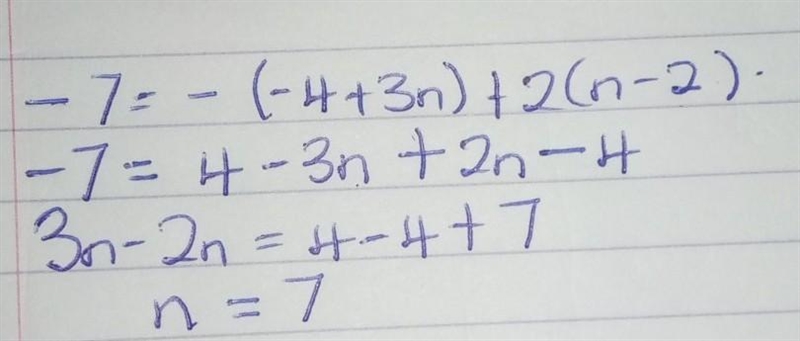 -7 = -(-4+3n)+2(n-2).
-7 = 4-3n+2n-4
3n-2n = 4-4+7
n = 7